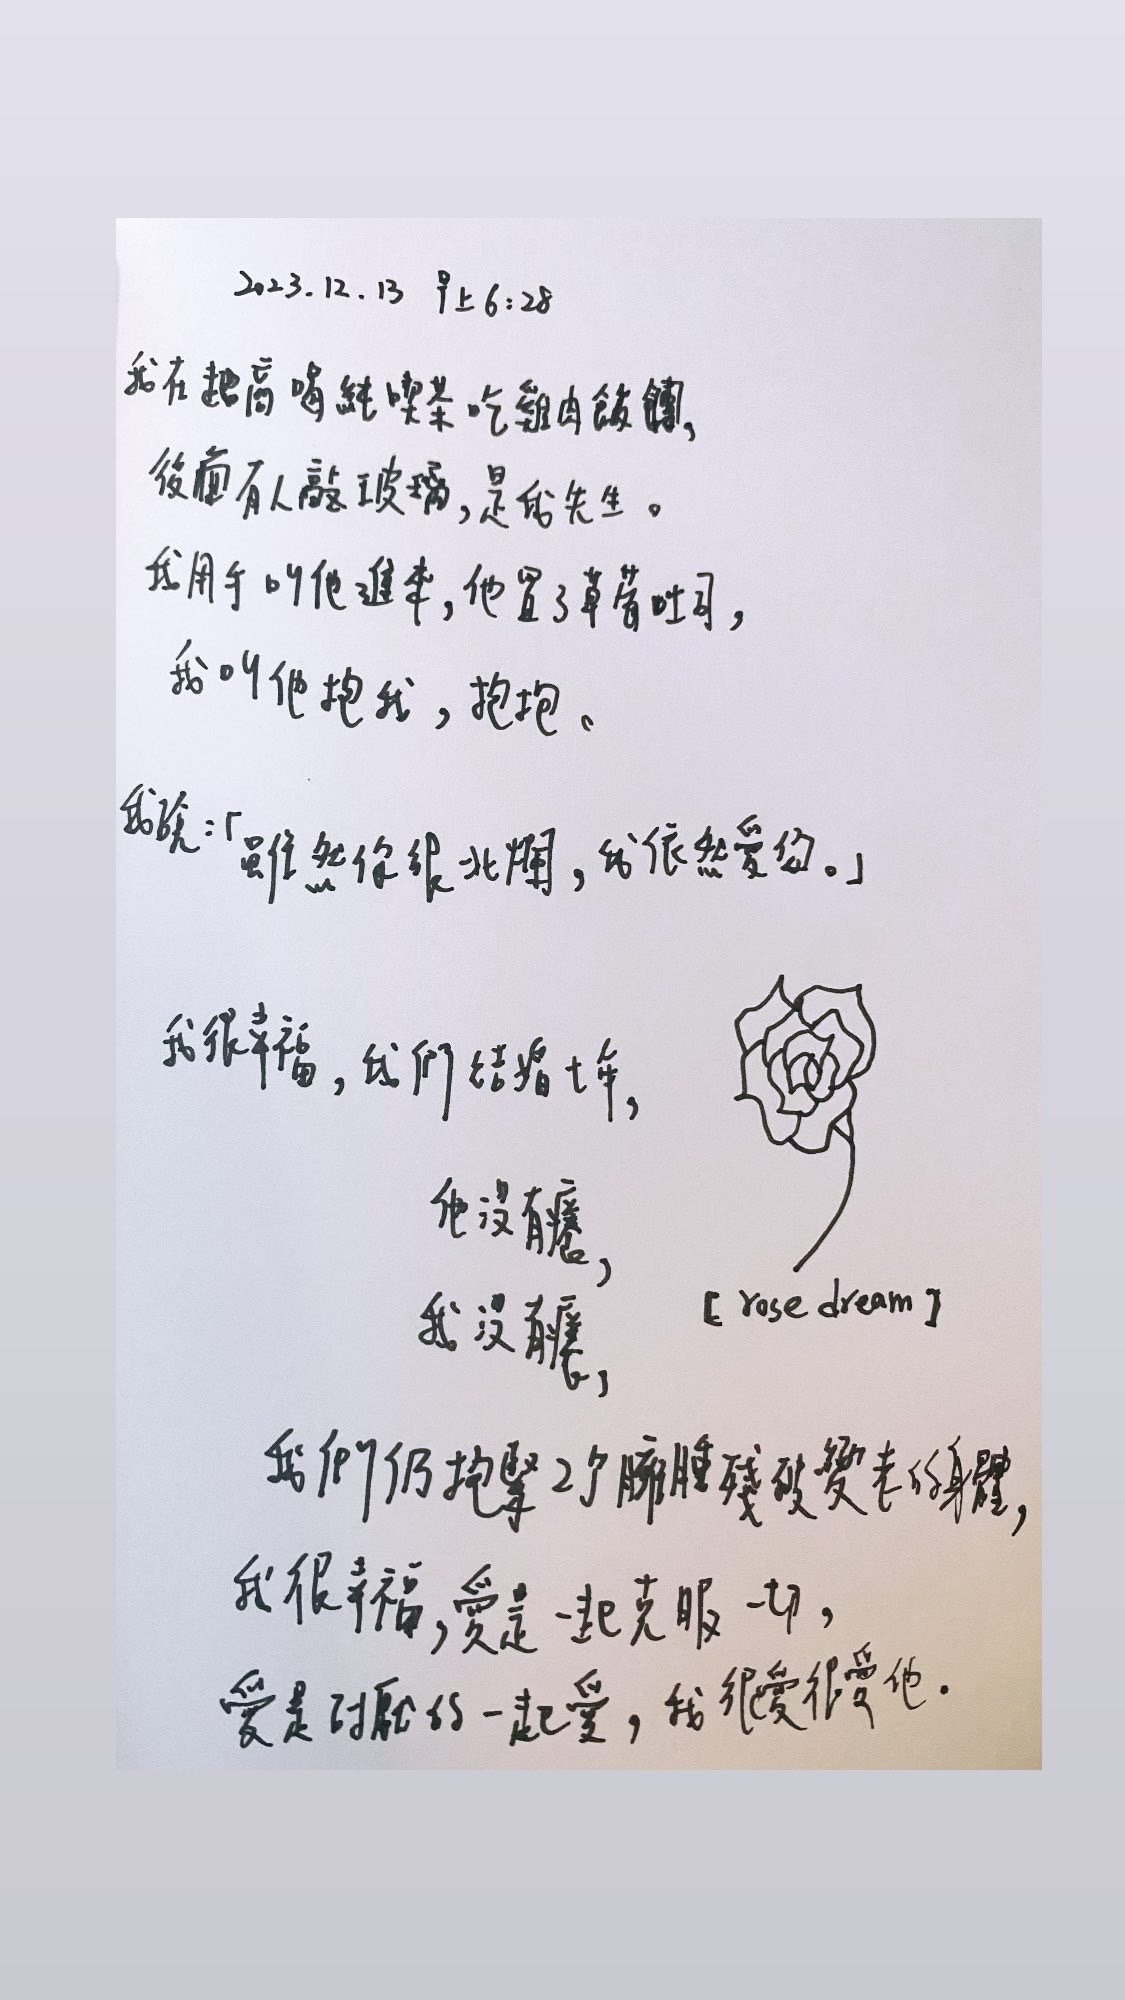 2023.12.13 早上6:28
我在超商喝純喫茶吃雞肉飯糰,
後面有人敲玻璃,是我先生。
我用手叫他進來,他買了草莓吐司,
我叫他抱我,抱抱。
我說:「雖然你很北爛,我依然愛你。」
我很幸福,我們結婚七年,
他沒有癢,
我沒有癢,
[rose dream]
我們仍抱緊2個臃腫殘破變老的身體,
我很幸福,愛是一起克服一切,
愛是討厭的一起愛,我很愛很愛他.